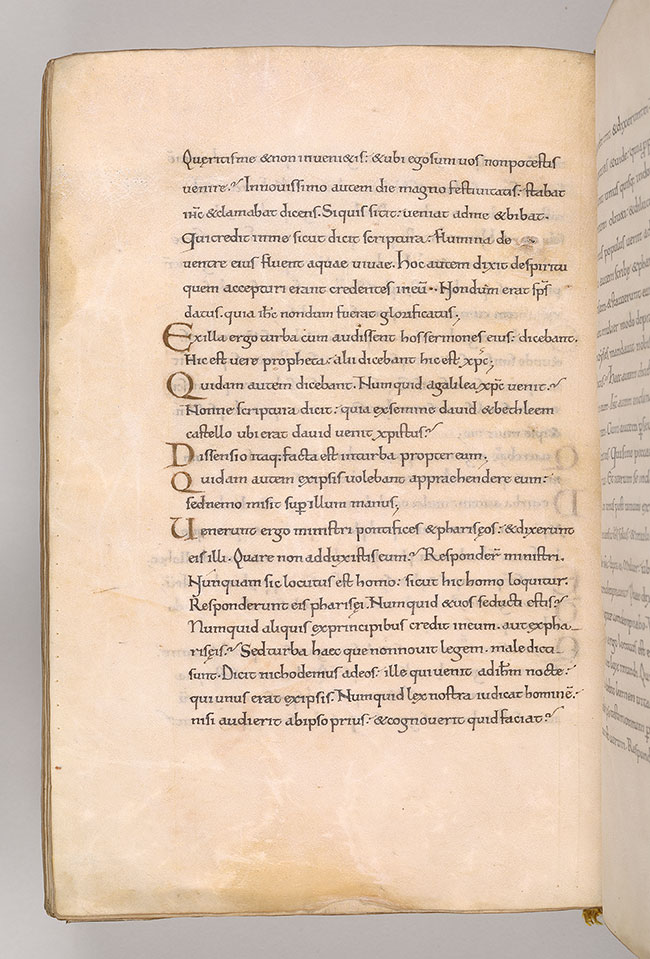 Queritisme & non inueni&is: & ubi ego sum uos non potestis
uenire? In nouissimo autem die magno festiuitatis: stabat
ihc & clamabat dicens. Si quis sitit: ueniat ad me & bibat.
Qui credit in me sicut dicit scriptura: flumina de
uentre eius fluent aquae uiuae. Hoc autem dixit de spiritu
quem accepturi erant credentes in eū. Nondum erat sps
datus. quia ihc nondum fuerat glorificatus;
Ex illa ergo turba cum audissent hos sermones eius: dicebant.
Hic est uere propheta: alii dicebant hic est xpc;
Quidam autem dicebant. Numquid a galilea xpc uenit?
Nonne scriptura dicit: quia ex semine dauid & bethleem
castello ubi erat dauid uenit xpistus?
Dissensio itaq: facta est in turba propter eum.
Quidam autem ex ipsis uolebant apprahendere eum:
sed nemo misit sup illum manus;
Uenerunt ergo ministri pontifices & phariseos: & dixerunt
eis illi. Quare non adduxistis eum? Responder̄ ministri.
Nunquam sic locutus est homo: sicut hic homo loquitur.
Responderunt eis pharisei. Numquid & uos seducti estis?
Numquid aliquis ex principibus credit in eum. aut ex pha-
riseis? Sed turba haec que non nouit legem. male dicti
sunt. Dicit nichodemus ad eos: ille qui uenit ad ihm nocte:
qui unus erat ex ipsis. Numquid lex nostra iudicat hominē:
nisi audierit ab ipso prius: & cognouerit quid faciat?